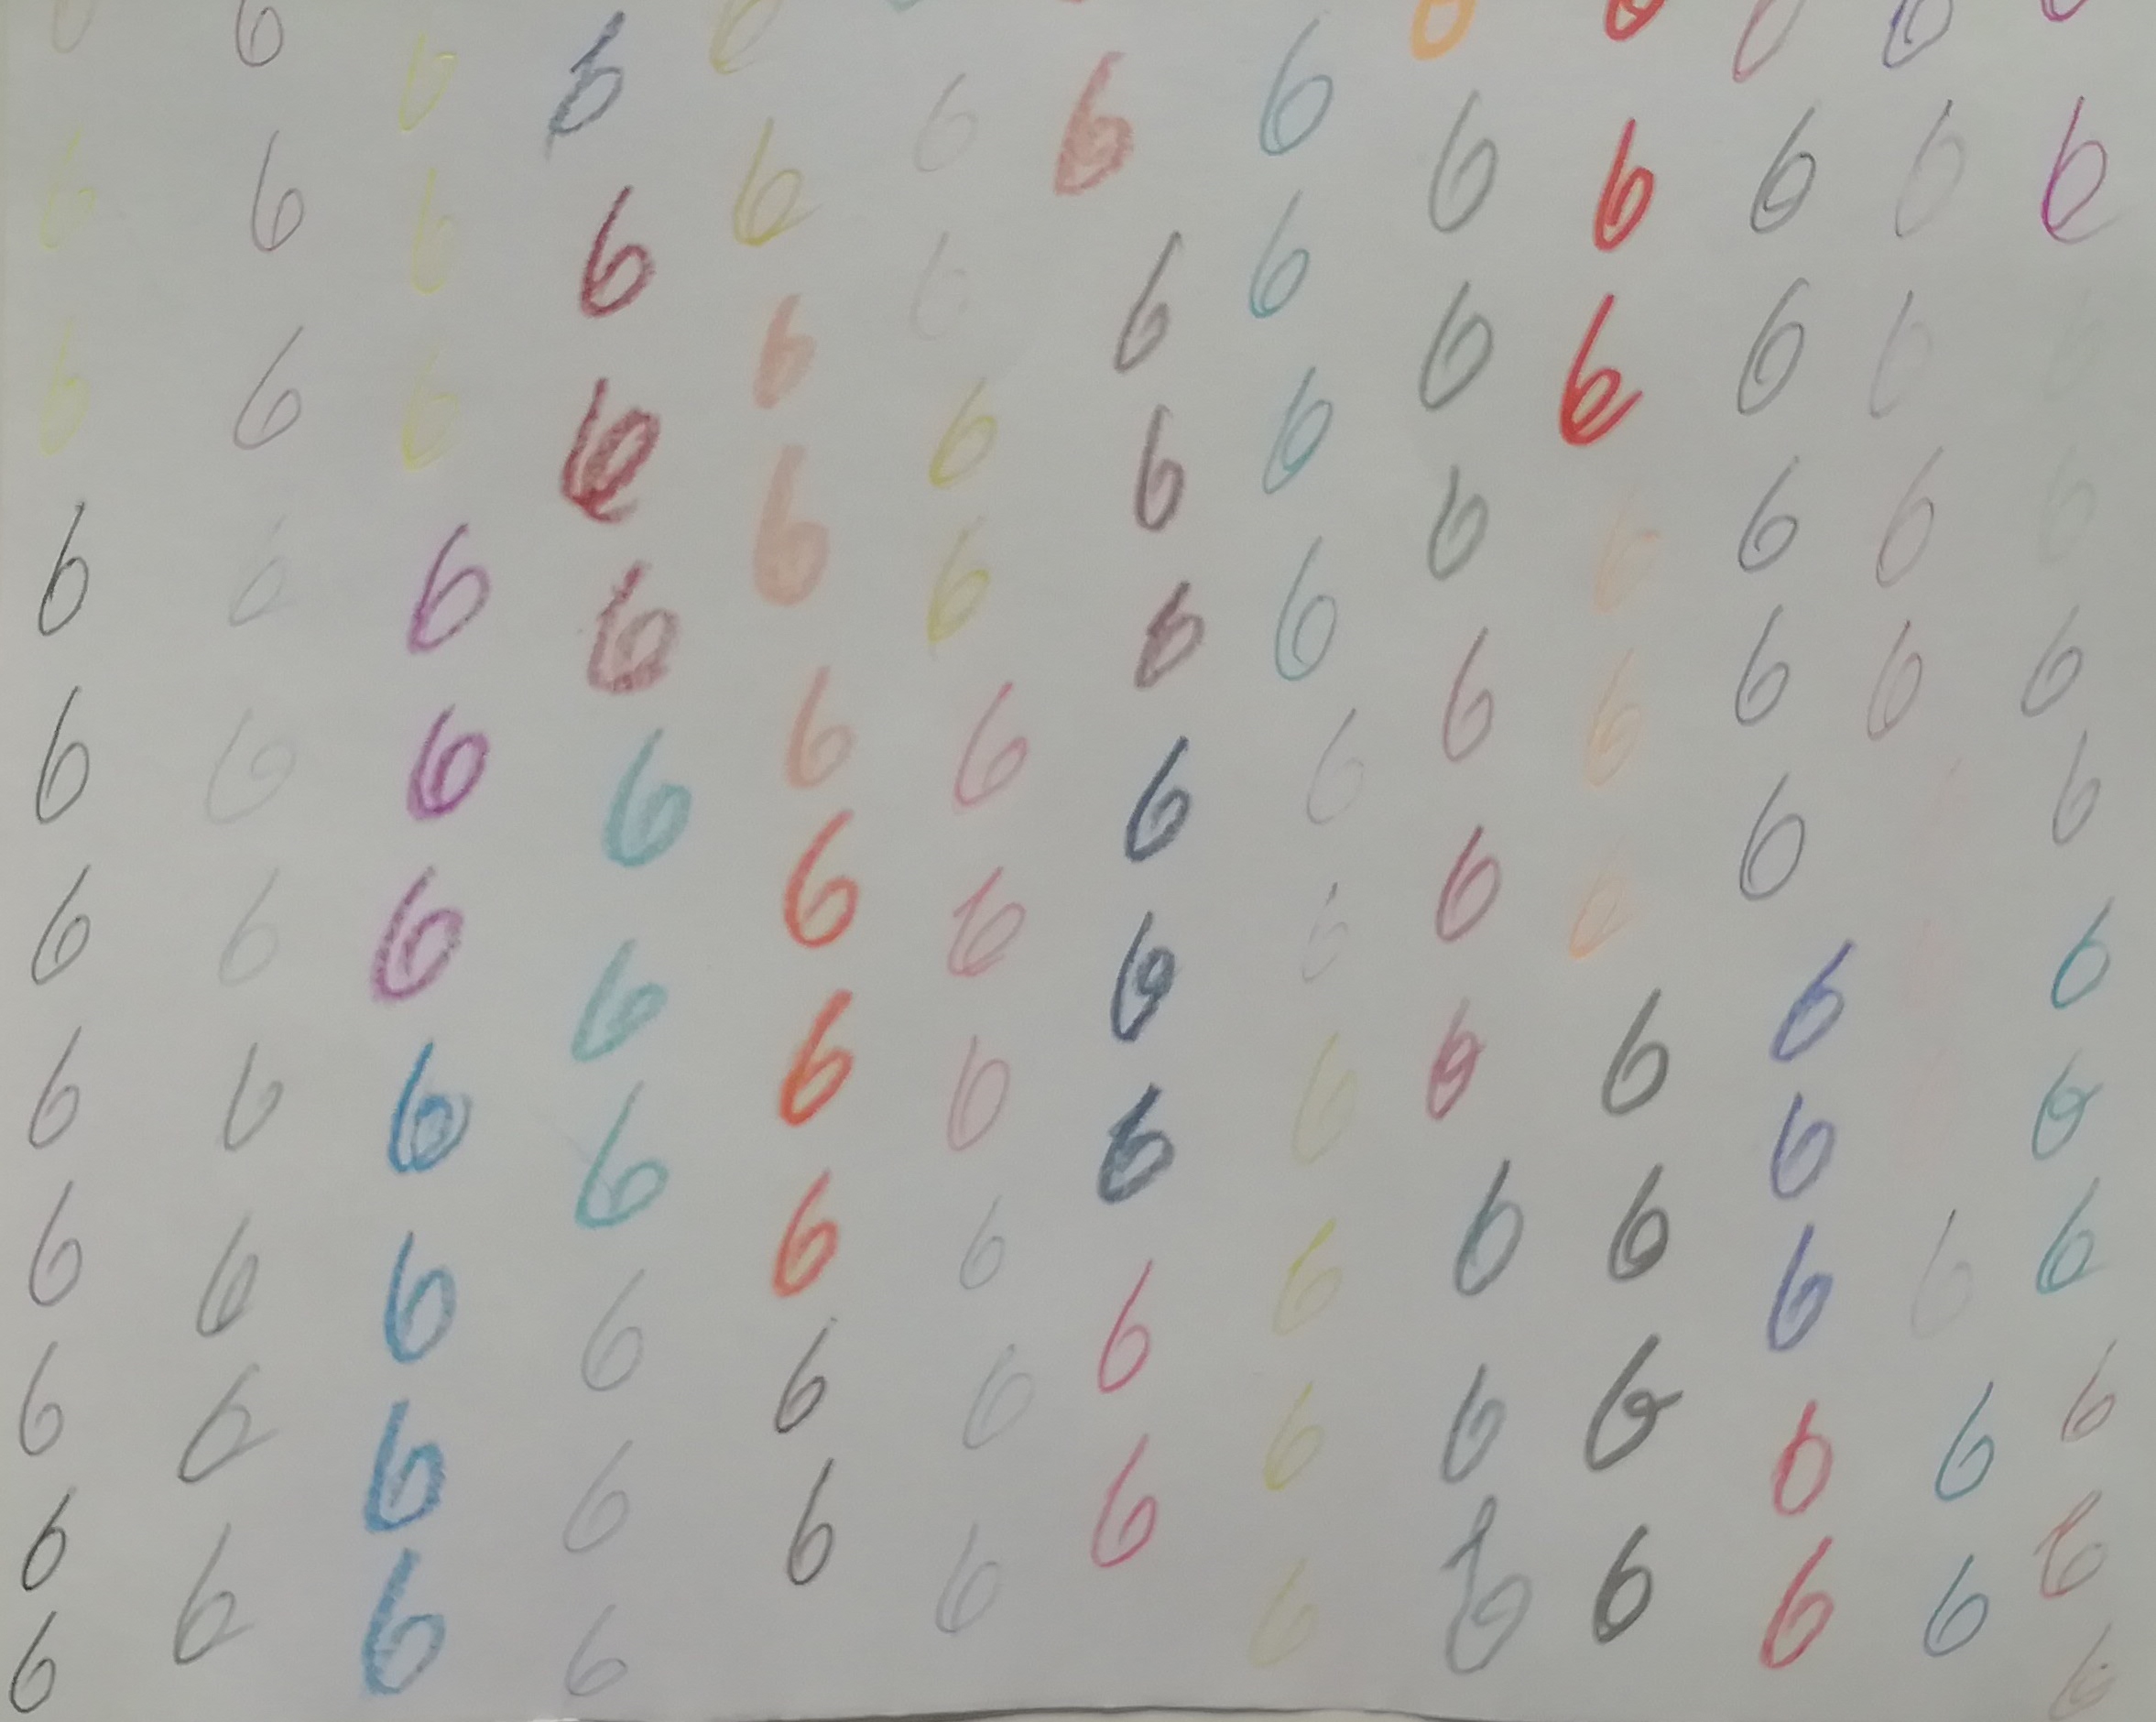 6 6 6 6 6 6 6 6 6 6 6 6 6
6 6 6 6 6 6 6 6 6 6 6 6 6
6 6 6 6 6 6 6 6 6 6 6 6 6
6 6 6 6 6 6 6 6 6 6 6 6 6
6 6 6 6 6 6 6 6 6 6 6 6 6
6 6 6 6 6 6 6 6 6 6 6 6
6 6 6 6 6 6 6 6 6 6 6 6
6 6 6 6 6 6 6 6 6 6 6 6 6
6 6 6 6 6 6 6 6 6 6 6 6 6
6 6 6 6 6 6 6 6 6 6 6 6 6
6 6 6 6